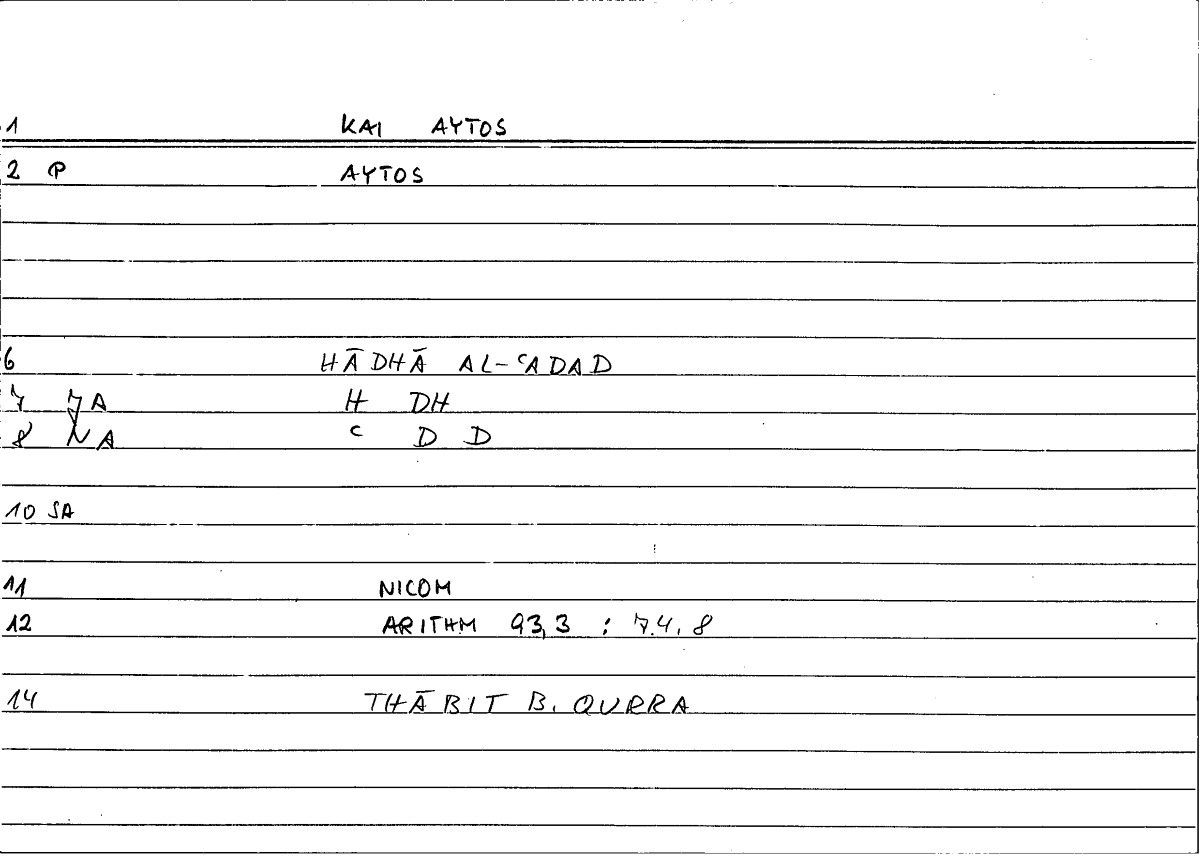 1 KAI AYTOS
2 P AYTOS
6 HĀDHĀ AL-ʿADAD
7 7A H DH
8 NA ʿ D D
10 SA
11 NICOM
12 ARITHM 93,3 : 74,8
14 THĀBIT B. QURRA